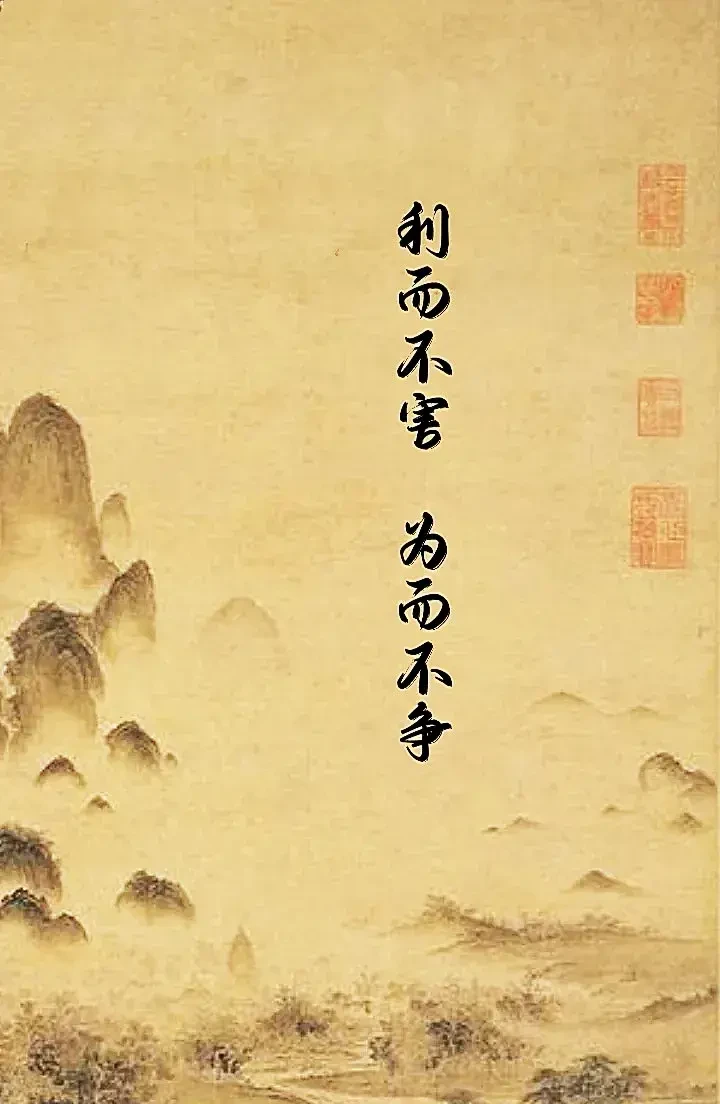 利而不害 为而不争